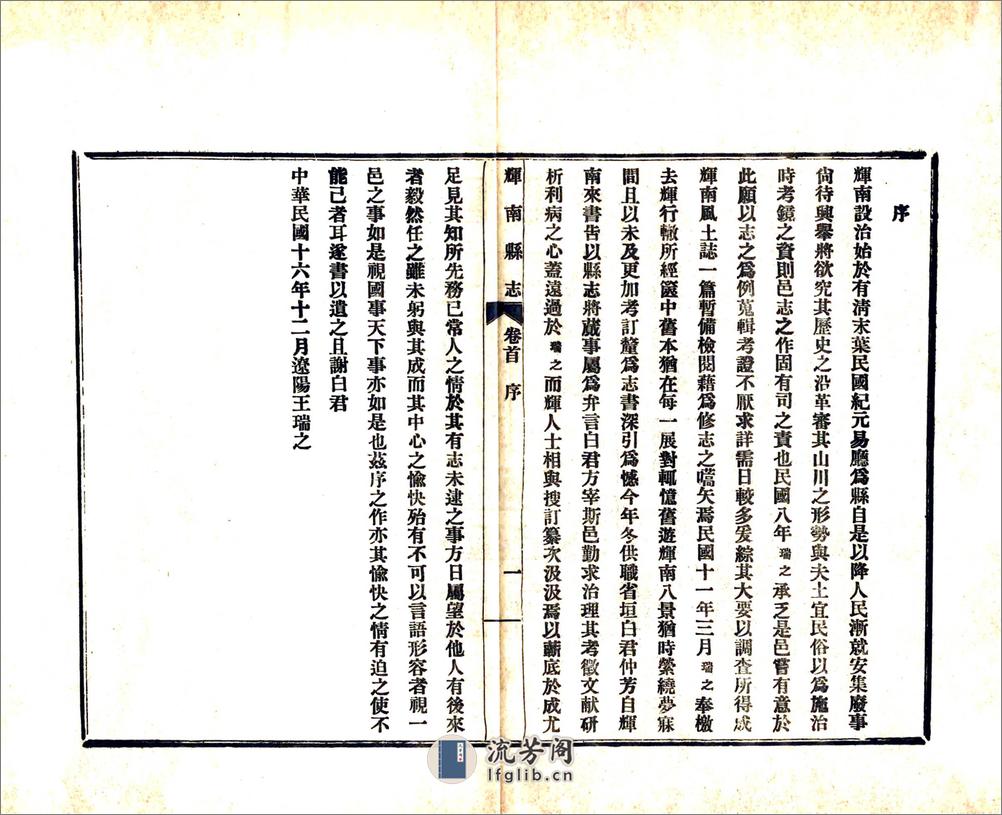 序
輝南設治始於有淸末葉民國紀元易廳爲縣自是以降人民漸就安集廢事
尙待興舉將欲究其歷史之沿革審其山川之形勢與夫土宜民俗以爲施治
時考鏡之資則邑志之作固有司之責也民國八年瑞之承乏是邑嘗有意於
此願以志之爲例蒐輯考證不厭求詳需日較多爰綜其大要以調查所得成
輝南風土誌一篇暫備檢閱藉爲修志之嚆矢焉民國十一年三月瑞之奉檄
去輝行轍所經篋中舊本猶在每一展對輒憶舊遊輝南八景猶時縈繞夢寐
間且以未及更加考訂釐爲志書深引爲憾今年冬供職省垣白君仲芳自輝
南來書告以縣志將蕆事屬爲弁言白君方宰斯邑勤求治理其考徵文献研
析利病之心蓋遠過於瑞之而輝人士相與搜訂纂次汲汲焉以蘄底於成尤
輝南縣志 卷首 序 一
足見其知所先務已常人之情於其有志未逮之事方日屬望於他人有後來
者毅然任之雖未躬與其成而其中心之愉快殆有不可以言語形容者視一
邑之事如是視國事天下事亦如是也茲序之作亦其愉快之情有迫之使不
能已者耳遂書以遺之且謝白君
中華民國十六年十二月遼陽王瑞之
流芳阁
lfglib.cn